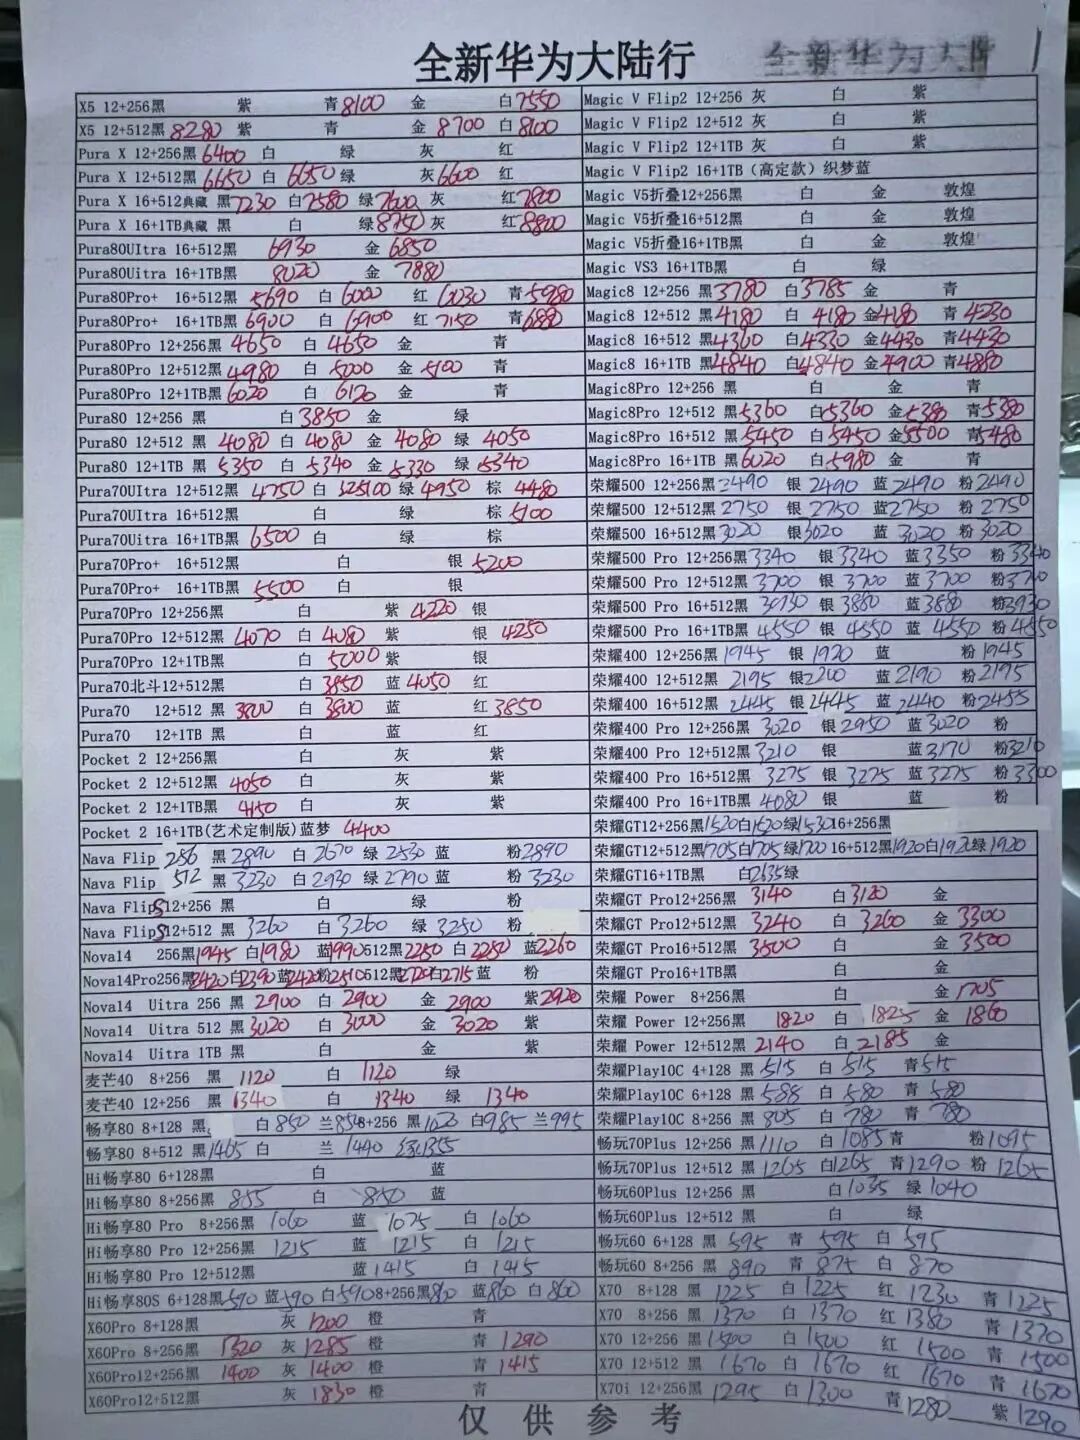 全新华为大陆行
全新华为大陆
X5 12+256黑 紫 青8100 金 白7550
X5 12+512黑8280 紫 青 金8700 白8100
Pura X 12+256黑6400 白 绿 灰 红
Pura X 12+512黑6650 白6650 绿 灰6600 红
Pura X 16+512典藏 黑7230 白7580 绿7600 灰 红7800
Pura X 16+1TB典藏 黑 白 绿8750 灰 红8800
Pura80UItra 16+512黑 6930 金6850
Pura80Uitra 16+1TB黑 8020 金 7880
Pura80Pro+ 16+512黑 5690 白6000 红6030 青5980
Pura80Pro+ 16+1TB黑6900 白6900 红7150 青6880
Pura80Pro 12+256黑4650 白4650 金 青
Pura80Pro 12+512黑4980 白5000 金5100 青
Pura80Pro 12+1TB黑6020 白6120 金 青
Pura80 12+256 黑 白3850 金 绿
Pura80 12+512 黑4080 白4080 金4080 绿4050
Pura80 12+1TB 黑5350 白5340 金5330 绿5340
Pura70UItra 12+512黑4750 白 绿4950 棕4480
Pura70UItra 16+512黑 白 绿 棕5100
Pura70Uitra 16+1TB黑6500 白 绿 棕
Pura70Pro+ 16+512黑 白 银5200
Pura70Pro+ 16+1TB黑5500 白 银
Pura70Pro 12+256黑 白 紫4220 银
Pura70Pro 12+512黑4070 白4080 紫 银4250
Pura70Pro 12+1TB黑 白5000 紫 银
Pura70北斗12+512黑 白3850 蓝4050 红
Pura70 12+512 黑3800 白3800 蓝 红3850
Pura70 12+1TB 黑 白 蓝 红
Pocket 2 12+256黑 白 灰 紫
Pocket 2 12+512黑4050 白 灰 紫
Pocket 2 12+1TB黑 4150 白 灰 紫
Pocket 2 16+1TB(艺术定制版)蓝梦 4400
Nava Flip 256 黑2890 白2670 绿2530 蓝 粉2890
Nava Flip 512 黑3230 白2930 绿2790 蓝 粉3230
Nava FlipS12+256 黑 白 绿 粉
Nava FlipS12+512 黑3260 白3260 绿3250 粉
Nova14 256黑1945 白1980 蓝1990 512黑2250 白2250 蓝2260
Nova14Pro256黑2420白2390蓝2420粉2510512黑2720白2715蓝 粉
Nova14 Uitra 256 黑2900 白2900 金2900 紫2920
Nova14 Uitra 512 黑3020 白3000 金3020 紫
Nova14 Uitra 1TB 黑 白 金 紫
麦芒40 8+256 黑 1120 白1120 绿
麦芒40 12+256 黑1340 白1340 绿1340
畅享80 8+128 黑 白850 兰850 8+256 黑1020 白985 兰995
畅享80 8+512 黑1465 白 兰1440 1355
Hi畅享80 6+128黑 白 蓝
Hi畅享80 8+256黑 855 白 850 蓝
Hi畅享80 Pro 8+256黑1060 蓝1075 白1060
Hi畅享80 Pro 12+256黑1215 蓝1215 白1215
Hi畅享80 Pro 12+512黑 蓝1415 白1415
Hi畅享80S 6+128黑590 蓝590 白590 8+256黑860 蓝860 白860
X60Pro 8+128黑 灰1200 橙 青
X60Pro 8+256黑 1320 灰1285 橙 青1290
X60Pro12+256黑 1400 灰1400 橙 青1415
X60Pro12+512黑 灰1830 橙 青
Magic V Flip2 12+256 灰 白 紫
Magic V Flip2 12+512 灰 白 紫
Magic V Flip2 12+1TB 灰 白 紫
Magic V Flip2 16+1TB（高定款）织梦蓝
Magic V5折叠12+256黑 白 金 敦煌
Magic V5折叠16+512黑 白 金 敦煌
Magic V5折叠16+1TB黑 白 金 敦煌
Magic VS3 16+1TB黑 白 绿
Magic8 12+256 黑3780 白3785 金 青
Magic8 12+512 黑4180 白4180 金4180 青4230
Magic8 16+512 黑4360 白4330 金4430 青4430
Magic8 16+1TB 黑4840 白4840 金4900 青4880
Magic8Pro 12+256 黑 白 金 青
Magic8Pro 12+512 黑5360 白5360 金5380 青5380
Magic8Pro 16+512 黑5450 白5450 金5500 青5480
Magic8Pro 16+1TB 黑6020 白5980 金 青
荣耀500 12+256黑2490 银2490 蓝2490 粉2490
荣耀500 12+512黑2750 银2750 蓝2750 粉2750
荣耀500 16+512黑3020 银3020 蓝3020 粉3020
荣耀500 Pro 12+256黑3340 银3340 蓝3350 粉3340
荣耀500 Pro 12+512黑3700 银3700 蓝3700 粉
荣耀500 Pro 16+512黑 银3880 蓝3880 粉3930
荣耀500 Pro 16+1TB黑4550 银4550 蓝4550 粉4550
荣耀400 12+256黑1945 银1920 蓝 粉1945
荣耀400 12+512黑2195 银2200 蓝2190 粉2195
荣耀400 16+512黑2445 银2445 蓝2440 粉2455
荣耀400 Pro 12+256黑3020 银2950 蓝3020 粉
荣耀400 Pro 12+512黑3210 银 蓝3170 粉3210
荣耀400 Pro 16+512黑3275 银3275 蓝3275 粉3300
荣耀400 Pro 16+1TB黑4080 银 蓝 粉
荣耀GT12+256黑1520白1520绿1530 16+256黑
荣耀GT12+512黑1705白1705绿1700 16+512黑1920白1920绿1920
荣耀GT16+1TB黑 白2635绿
荣耀GT Pro12+256黑3140 白3120 金
荣耀GT Pro12+512黑3240 白3260 金3300
荣耀GT Pro16+512黑3500 白 金3500
荣耀GT Pro16+1TB黑 白 金
荣耀 Power 8+256黑 白 金1705
荣耀 Power 12+256黑 1820 白1825 金1860
荣耀 Power 12+512黑2140 白2185 金
荣耀Play10C 4+128 黑515 白515 青515
荣耀Play10C 6+128 黑588 白580 青580
荣耀Play10C 8+256 黑805 白780 青780
畅玩70Plus 12+256 黑1110 白1085 青 粉1095
畅玩70Plus 12+512 黑1265 白1265 青1290 粉1265
畅玩60Plus 12+256 黑 白1035 绿1040
畅玩60Plus 12+512 黑 白 绿
畅玩60 6+128 黑595 青595 白595
畅玩60 8+256 黑890 青875 白870
X70 8+128 黑1225 白1225 红1230 青1225
X70 8+256 黑1370 白1370 红1380 青1370
X70 12+256 黑1500 白1500 红1500 青1500
X70 12+512 黑1670 白1670 红1670 青1670
X70i 12+256黑1295 白1300 青1280 紫1290
仅供参考